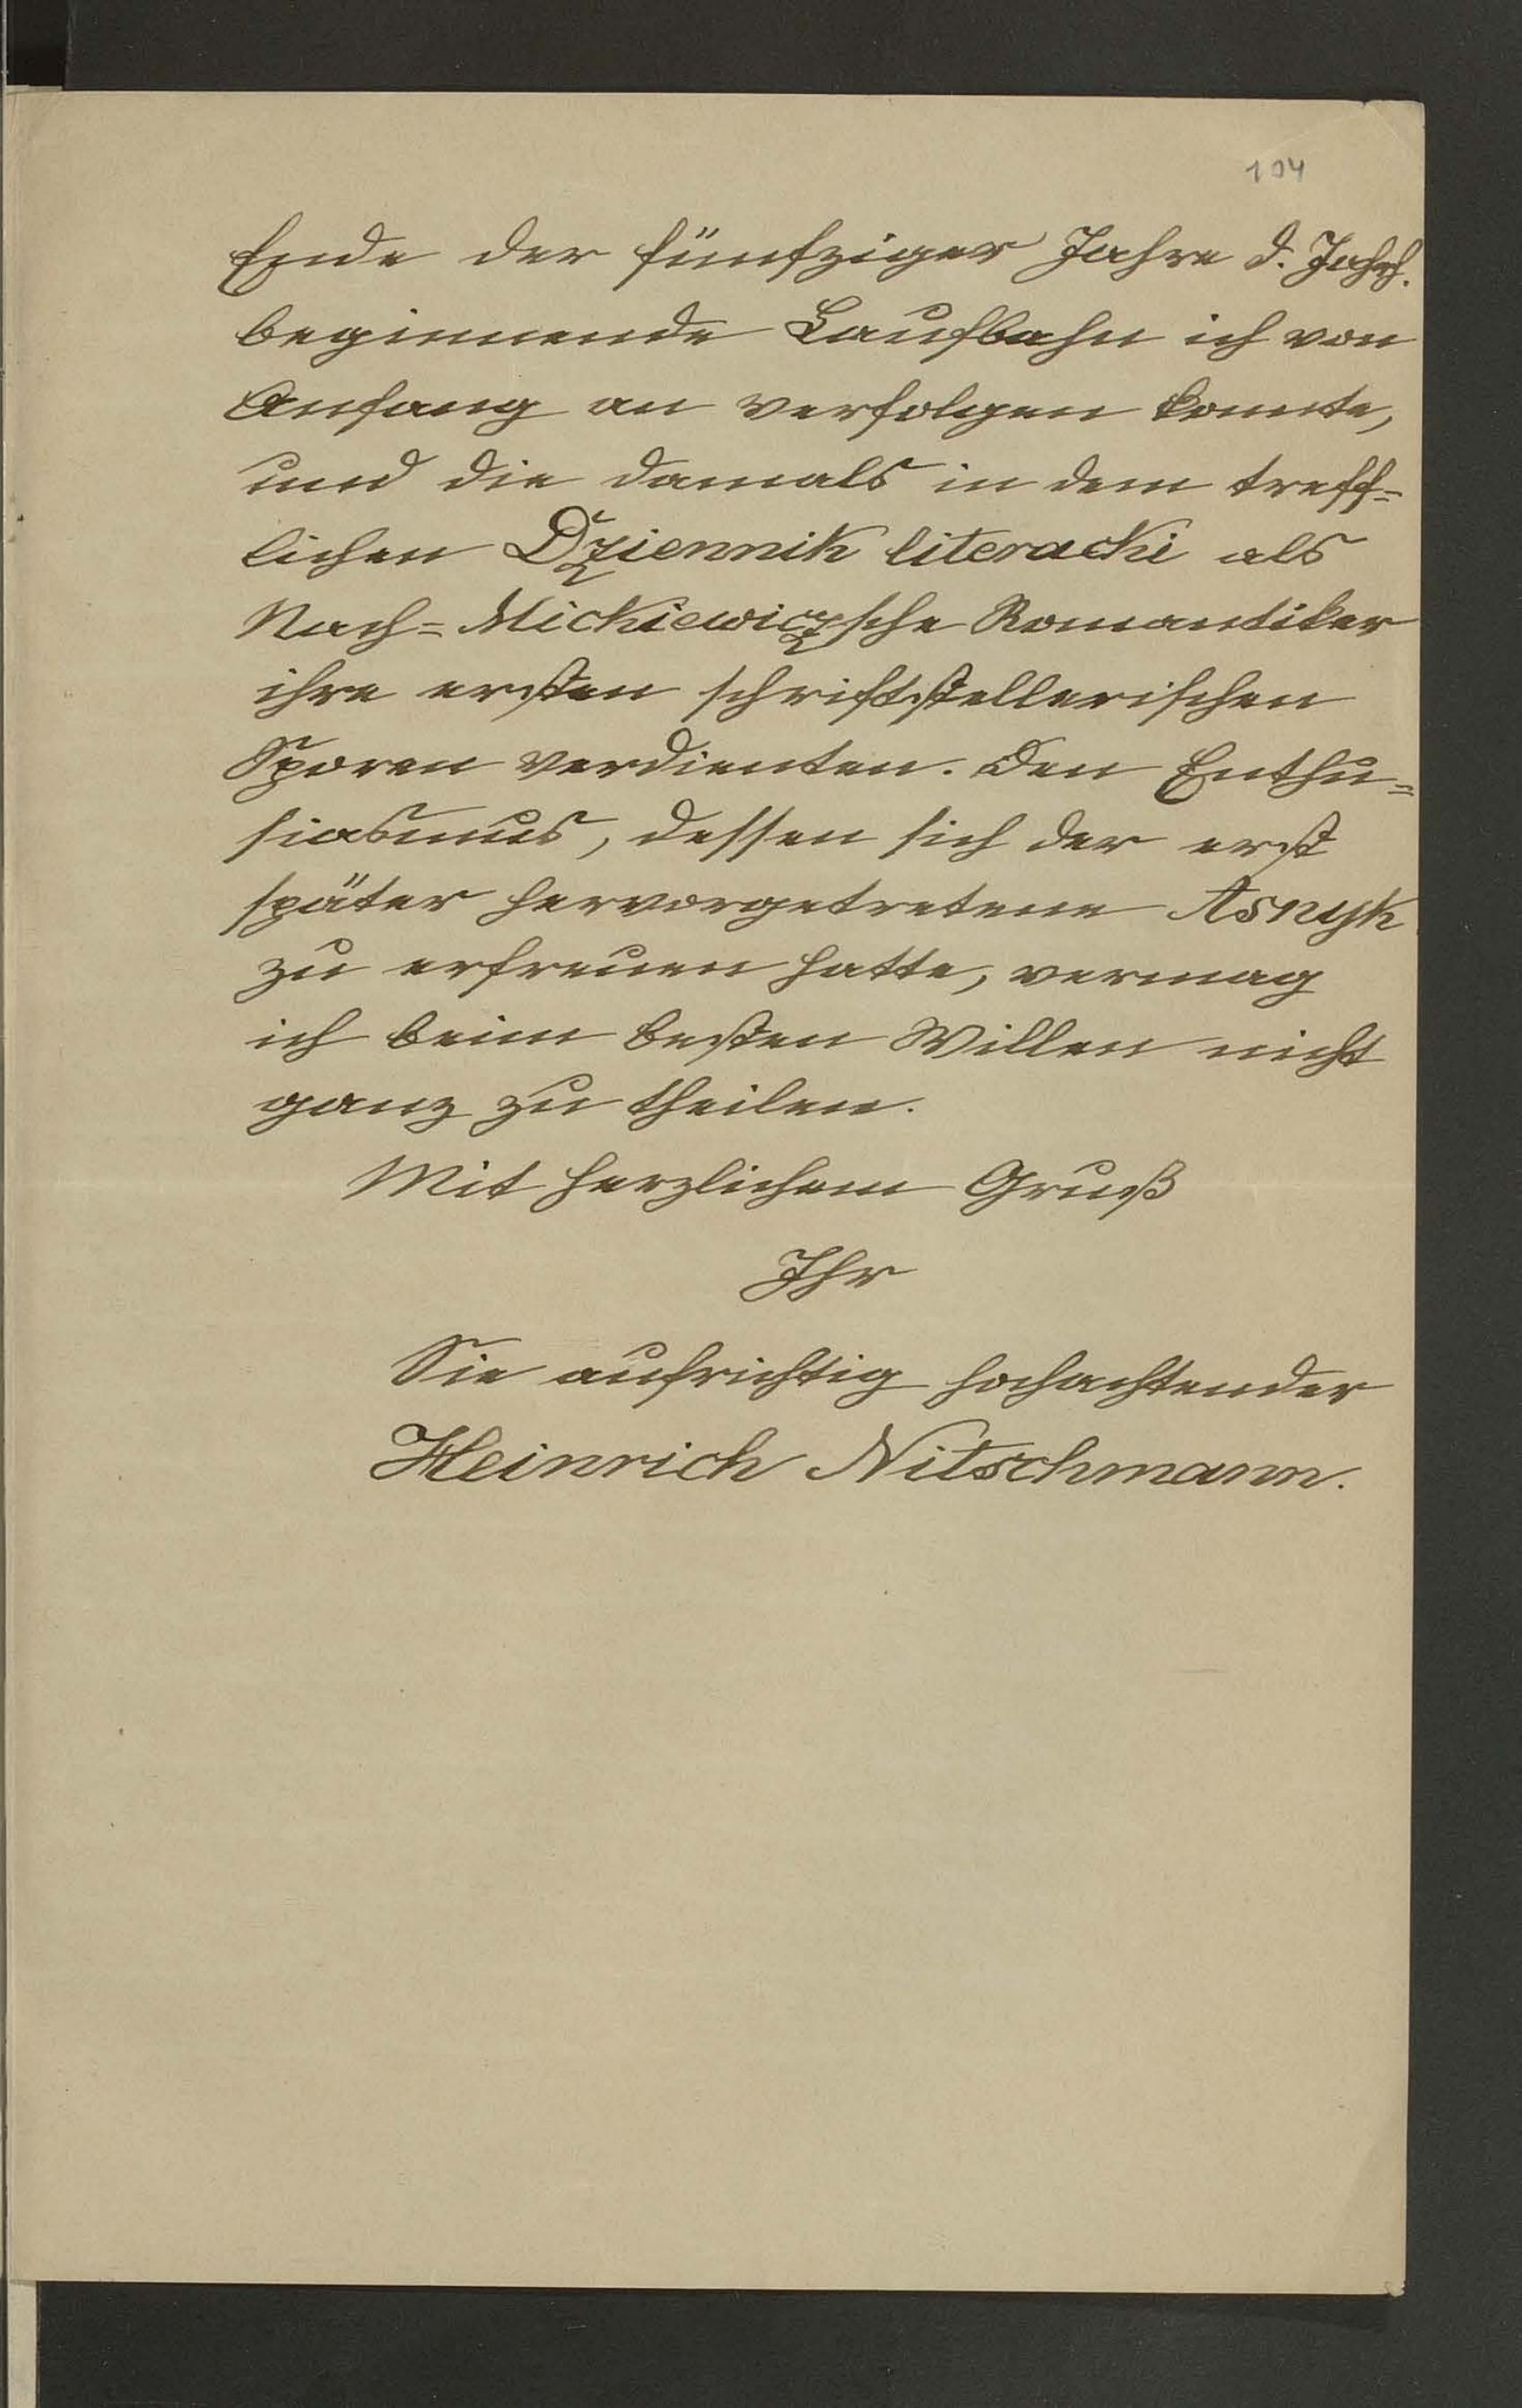 104
Ende der fünfziger Jahre d. Jahrh.
beginnende Laufbahn ich von
Anfang an verfolgen konnte,
und die damals in dem treff=
lichen Dziennik literacki als
Nach=Mickiewiczsche Romantiker
ihre ersten schriftstellerischen
Sporen verdienten. Den Enthu=
siasmus, dessen sich der erst
später hervorgetretene Asnyk
zu erfreuen hatte, vermag
ich beim besten Willen nicht
ganz zu theilen.
Mit herzlichem Gruß
Ihr
Sie aufrichtig hochachtender
Heinrich Nitschmann.